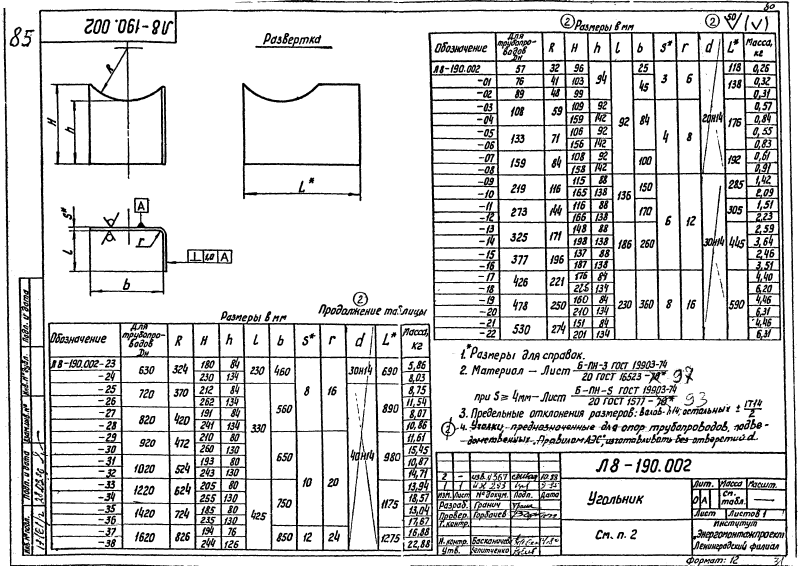 85
Л8-190.002
80
Развертка
R
H
h
L*
S*
A
r
l
⊥ 1,0 A
b
② Размеры в мм ② 50/ (√)
Обозначение Для трубопроводов Dн R H h l b s* r d L* Масса, кг
Л8-190.002 57 32 96 94 92 25 3 6 20H14 118 0,26
-01 76 41 103 45 138 0,32
-02 89 48 99 0,31
-03 108 59 109 92 84 4 8 176 0,57
-04 159 142 0,84
-05 133 71 106 92 0,55
-06 156 142 0,83
-07 159 84 108 92 100 192 0,61
-08 158 142 0,91
-09 219 116 115 88 136 150 6 12 30H14 285 1,42
-10 165 138 2,09
-11 273 144 116 88 170 305 1,51
-12 166 138 2,23
-13 325 171 148 88 186 260 445 2,59
-14 198 138 3,64
-15 377 196 137 88 2,46
-16 187 138 3,51
-17 426 221 176 84 230 360 8 16 590 4,40
-18 226 134 6,20
-19 478 250 160 84 4,46
-20 210 134 6,31
-21 530 274 151 84 4,46
-22 201 134 6,31
Размеры в мм ② Продолжение таблицы
Обозначение Для трубопроводов Dн R H h l b s* r d L* Масса, кг
Л8-190.002-23 630 324 180 84 230 460 8 16 30H14 690 5,86
-24 230 134 8,03
-25 720 370 212 84 330 560 40H14 890 8,75
-26 262 134 11,54
-27 820 420 191 84 8,07
-28 241 134 10,86
-29 920 472 210 80 650 10 20 980 11,61
-30 260 130 15,45
-31 1020 524 193 80 10,87
-32 243 130 14,71
-33 1220 624 205 80 425 750 1175 13,94
-34 255 130 18,57
-35 1420 724 185 80 13,04
-36 235 130 17,67
-37 1620 826 194 76 850 12 24 1275 16,88
-38 244 126 22,88
1.* Размеры для справок.
2. Материал – Лист Б-ПН-3 ГОСТ 19903-74
20 ГОСТ 16523-70* 97
при S ≥ 4мм – Лист Б-ПН-S ГОСТ 19903-74
20 ГОСТ 1577-70* 93
3. Предельные отклонения размеров: валов-h14; остальных ± IT14/2
② 4. Уголки, предназначенные для опор трубопроводов, подве-
домственных „Правилам АЭС", изготавливать без отверстий d.
Л8-190.002
Угольник
См. п. 2
Лит. Масса Масшт.
О А См. табл. —
Лист Листов 1
институт
„Энергомонтажпроект"
Ленинградский филиал
Изм. Лист № докум. Подп. Дата
Разраб. Гранич
Провер. Горбачев
Т.контр.
Н.контр.
Утв.
Формат: 12
Инв.№ подл. Подп. и дата Взам.инв.№ Инв.№ дубл. Подп. и дата